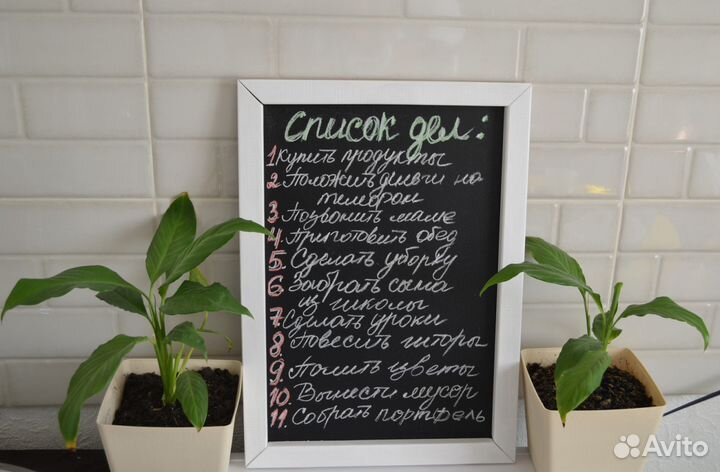 Список дел:
1 Купить продукты
2 Положить деньги на
телефон
3 Позвонить маме
4 Приготовить обед
5. Сделать уборку
6. Забрать сына
из школы
7. Сделать уроки
8. Повесить шторы
9. Полить цветы
10. Вынести мусор
11. Собрать портфель
Avito